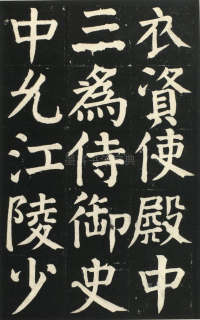 衣資使殿中
三爲侍御史
中允江陵少